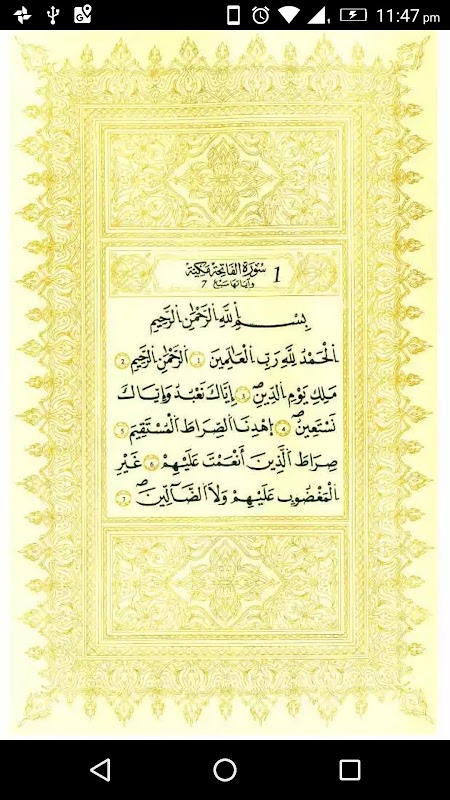 11:47 pm
سُورَةُ الفَاتِحَةِ مَكِّيَّة 1
وآياتها سَبْع 7
بِسْمِ اِ۬للَّهِ اِ۬لرَّحْمَٰنِ اِ۬لرَّحِيمِ
اَ۬لْحَمْدُ لِلَّهِ رَبِّ اِ۬لْعَٰلَمِينَ 1 اَ۬لرَّحْمَٰنِ اِ۬لرَّحِيمِ 2
مَلِكِ يَوْمِ اِ۬لدِّينِۖ 3 إِيَّاكَ نَعْبُدُ وَإِيَّاكَ
نَسْتَعِينُۖ 4 اُ۪هْدِنَا اَ۬لصِّرَٰطَ اَ۬لْمُسْتَقِيمَ 5
صِرَٰطَ اَ۬لذِينَ أَنْعَمْتَ عَلَيْهِمْ 6 غَيْرِ
اِ۬لْمَغْضُوبِ عَلَيْهِمْ وَلَا اَ۬لضَّآلِّينَۖ 7